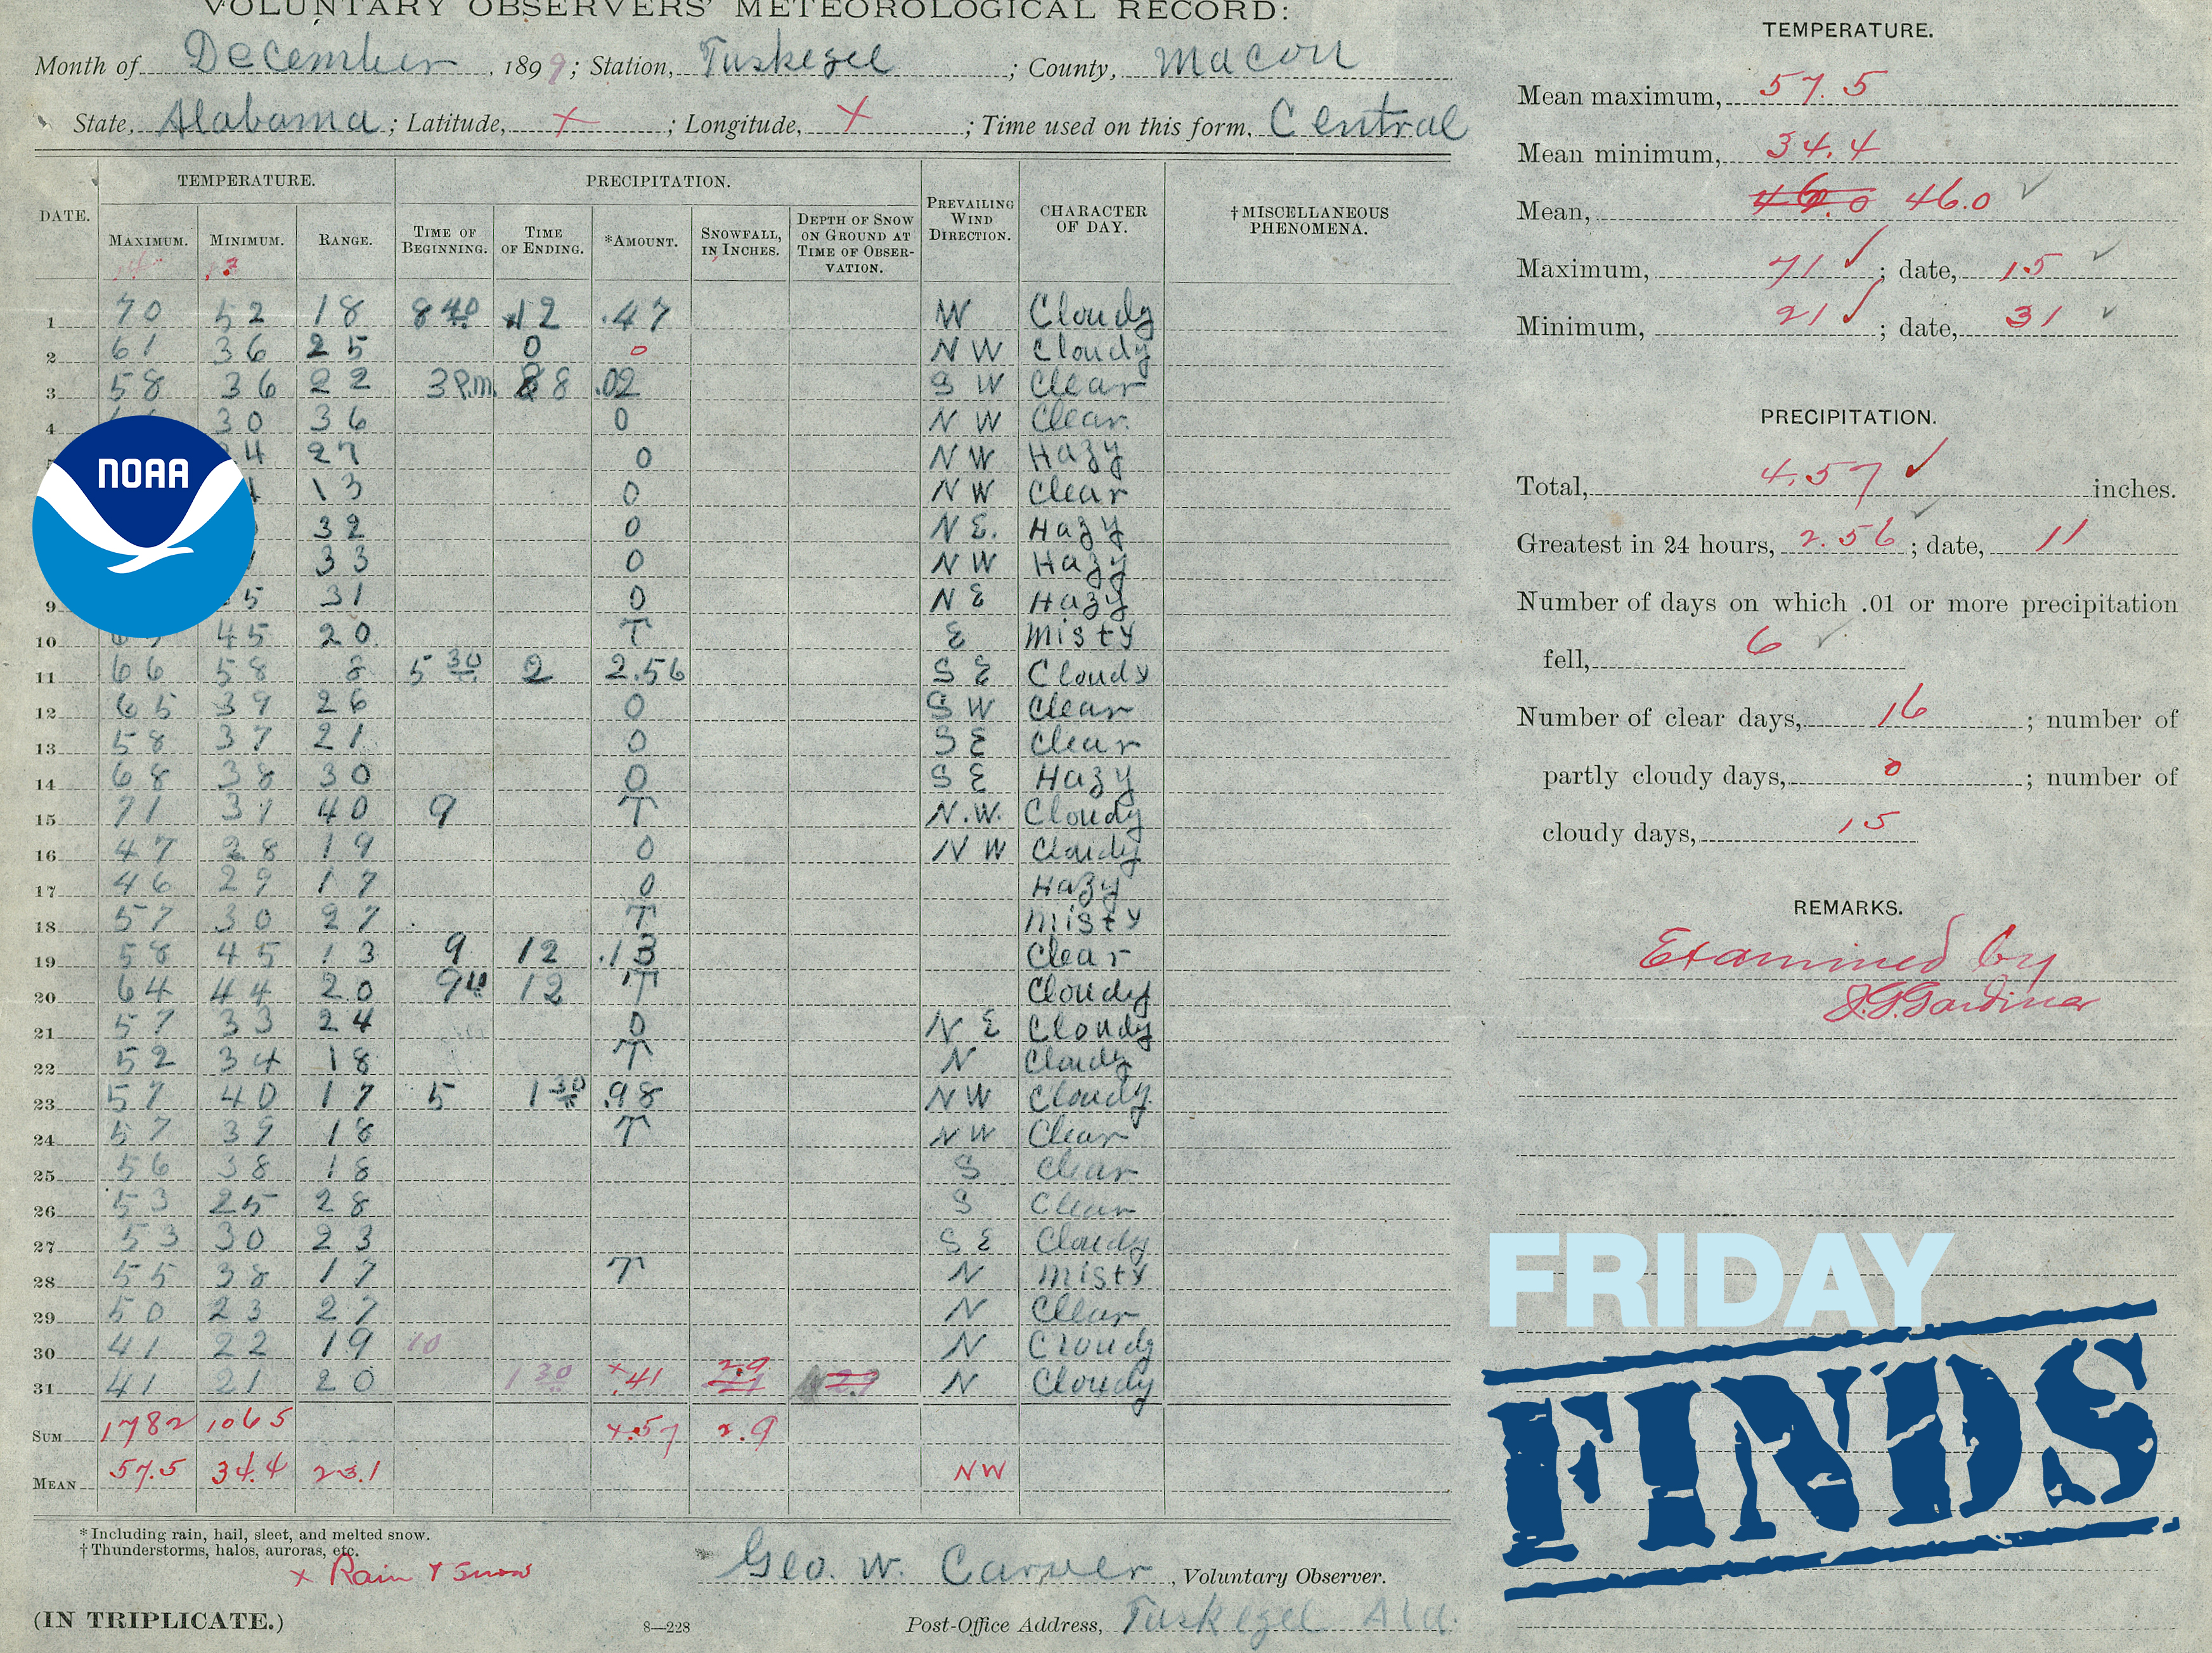 VOLUNTARY OBSERVERS' METEOROLOGICAL RECORD:
Month of December, 1899; Station, Tuskegee; County, Macon
State, Alabama; Latitude, x; Longitude, x; Time used on this form, Central
DATE. TEMPERATURE. PRECIPITATION. PREVAILING WIND DIRECTION. CHARACTER OF DAY. †MISCELLANEOUS PHENOMENA.
MAXIMUM. MINIMUM. RANGE. TIME OF BEGINNING. TIME OF ENDING. *AMOUNT. SNOWFALL, IN INCHES. DEPTH OF SNOW ON GROUND AT TIME OF OBSERVATION.
1 70 52 18 8 40 12 .47 W Cloudy
2 61 36 25 0 0 NW Cloudy
3 58 36 22 3 P.m. 8 .02 SW Clear
4 30 36 0 NW Clear.
4 27 0 NW Hazy
13 0 NW Clear
32 0 NE. Hazy
33 0 NW Hazy
9 5 31 0 NE Hazy
10 45 20 T E Misty
11 66 58 8 5 30 2 2.56 SE Cloudy
12 65 39 26 0 SW Clear
13 58 37 21 0 SE Clear
14 68 38 30 0 SE Hazy
15 71 31 40 9 T N.W. Cloudy
16 47 28 19 0 NW Cloudy
17 46 29 17 0 Hazy
18 57 30 27 T Misty
19 58 45 13 9 12 .13 Clear
20 64 44 20 9 12 T Cloudy
21 57 33 24 0 NE Cloudy
22 52 34 18 T N Cloudy
23 57 40 17 5 1 30 .98 NW Cloudy.
24 57 39 18 T NW Clear
25 56 38 18 S Clear
26 53 25 28 S Clear
27 53 30 23 SE Cloudy
28 55 38 17 T N Misty
29 50 23 27 N Clear
30 41 22 19 10 N Cloudy
31 41 21 20 1 30 x .41 2.9 N Cloudy
SUM 1782 1065 4.57 2.9
MEAN 57.5 34.4 23.1 NW
* Including rain, hail, sleet, and melted snow.
† Thunderstorms, halos, auroras, etc.
x Rain & Snow
Geo. W. Carver, Voluntary Observer.
(IN TRIPLICATE.) 8—228 Post-Office Address, Tuskegee Ala.
TEMPERATURE.
Mean maximum, 57.5
Mean minimum, 34.4
Mean, 46.0 46.0
Maximum, 71; date, 15
Minimum, 21; date, 31
PRECIPITATION.
Total, 4.57 inches.
Greatest in 24 hours, 2.56; date, 11
Number of days on which .01 or more precipitation
fell, 6
Number of clear days, 16; number of
partly cloudy days, 0; number of
cloudy days, 15
REMARKS.
Examined by
J.G. Gardiner
NOAA
FRIDAY
FINDS